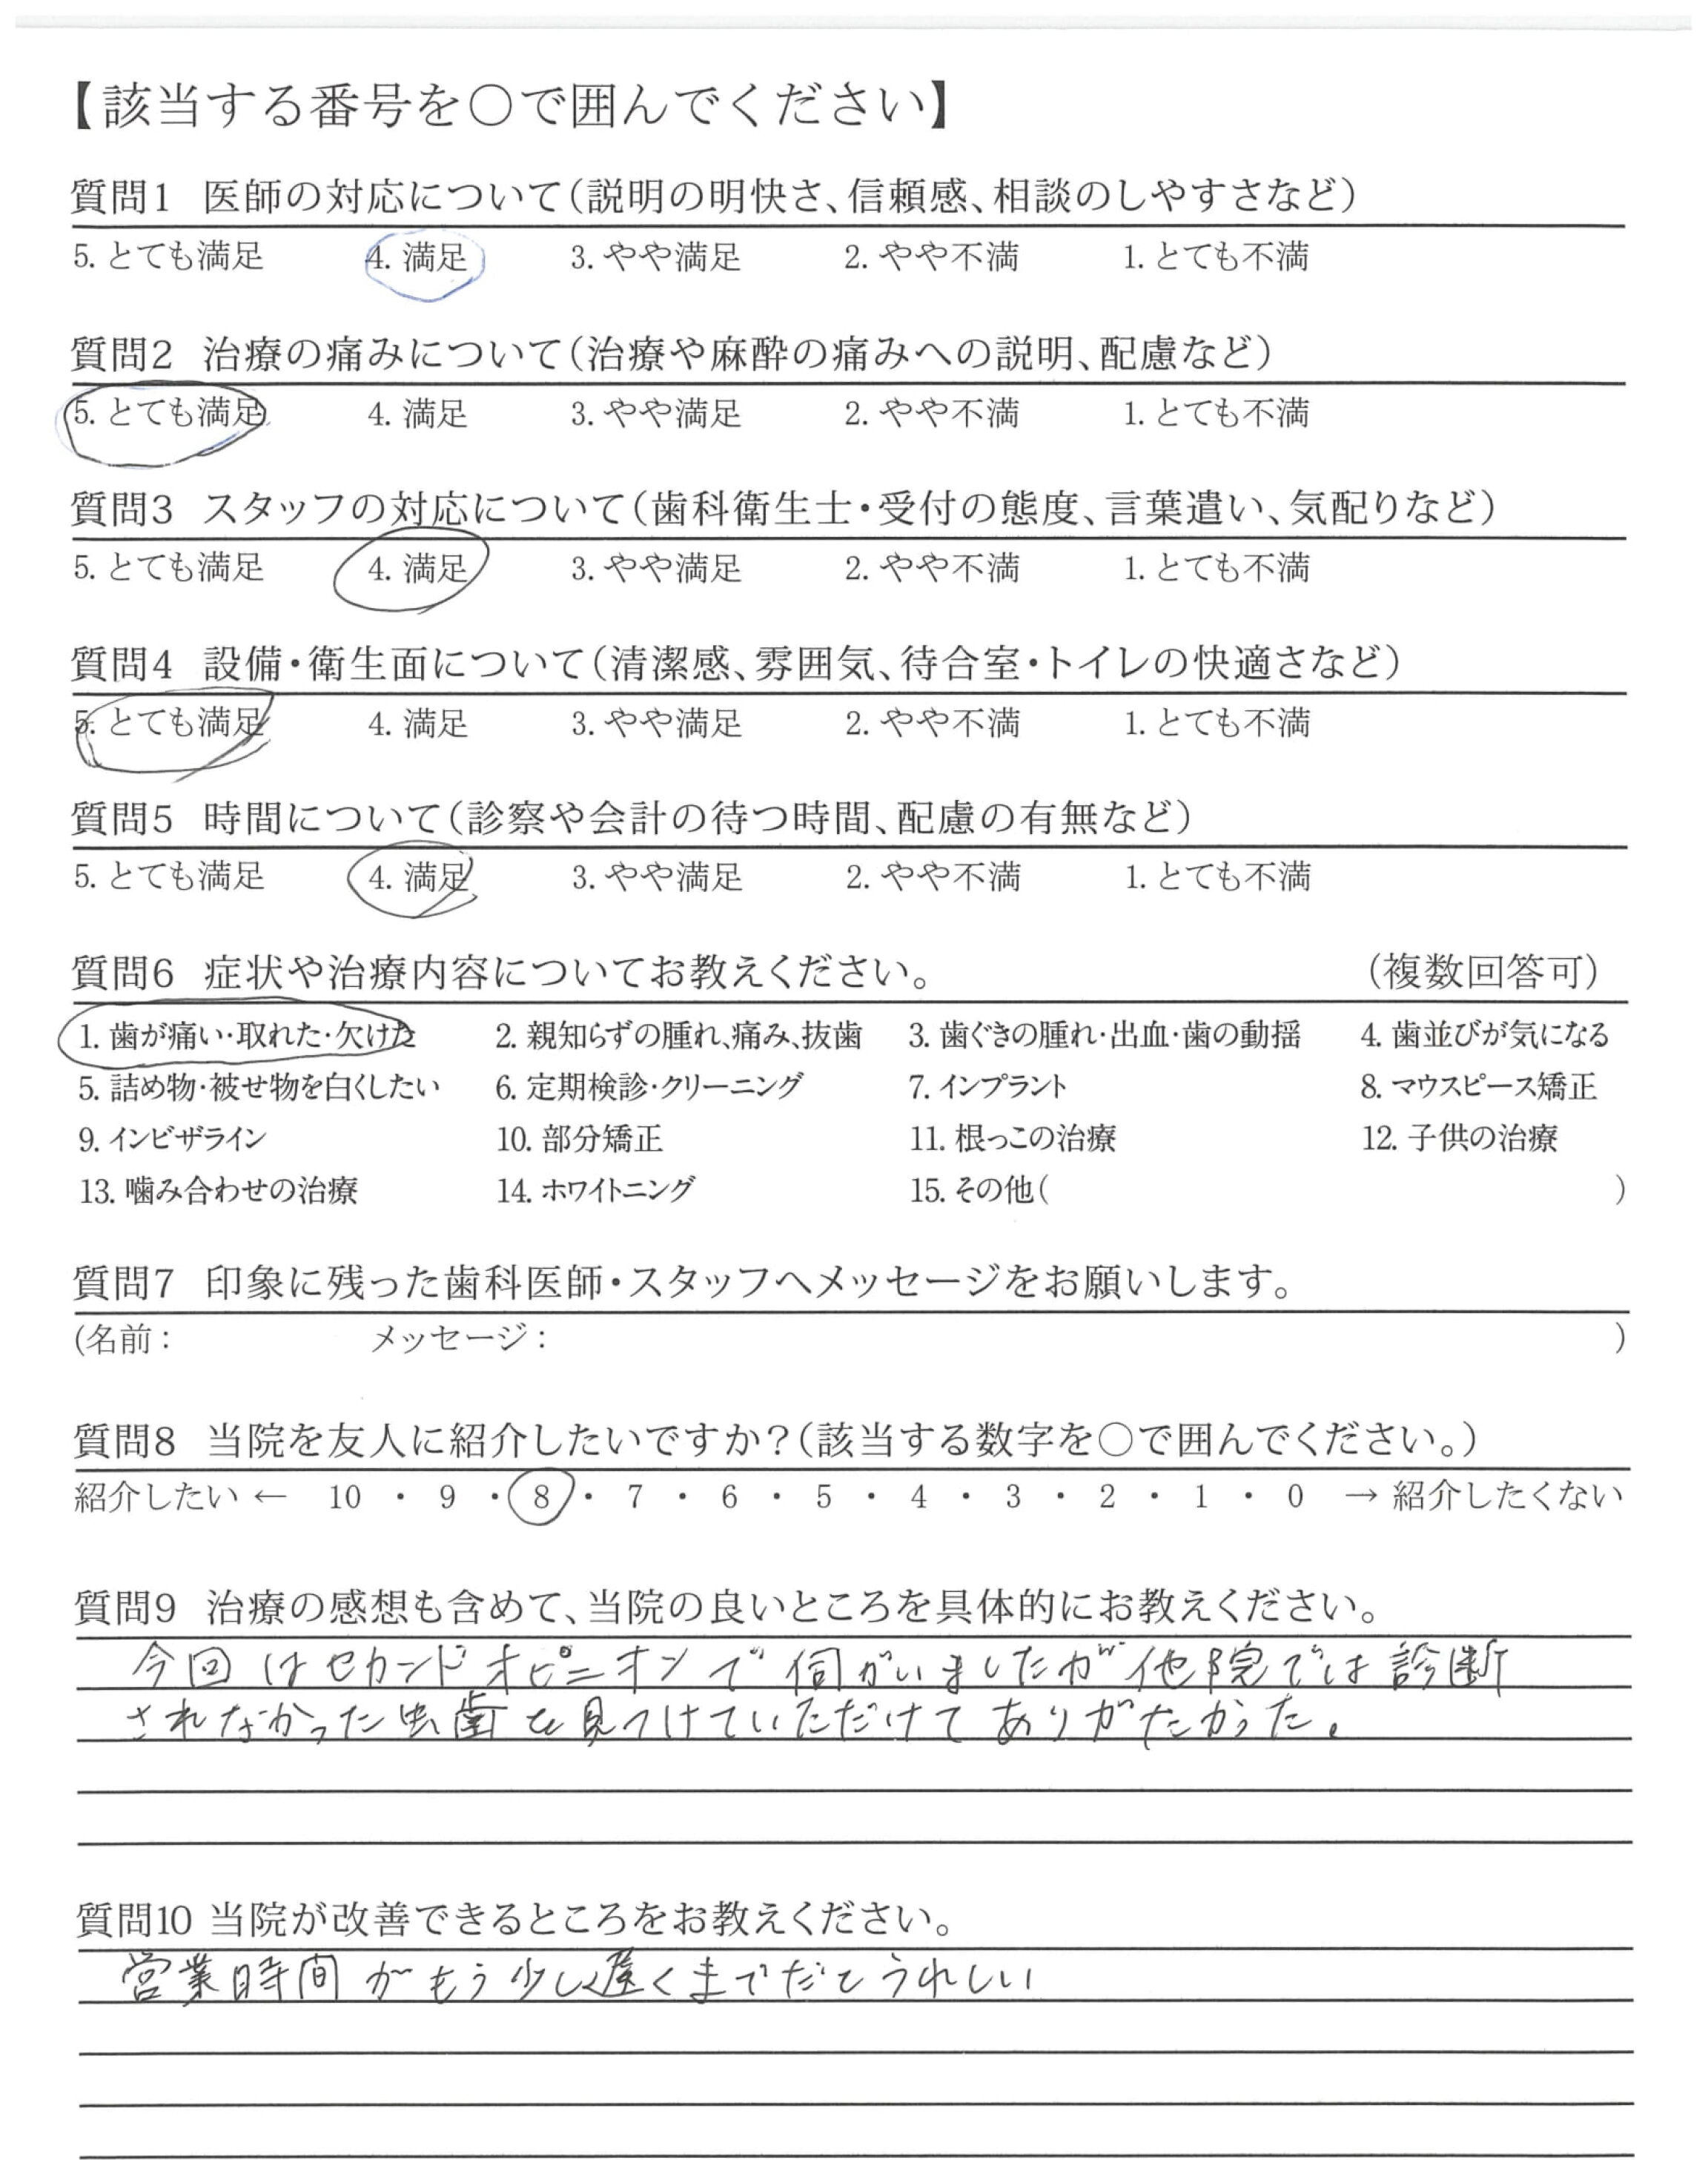 【該当する番号を○で囲んでください】
質問1 医師の対応について（説明の明快さ、信頼感、相談のしやすさなど）
5. とても満足 4. 満足 3. やや満足 2. やや不満 1. とても不満
質問2 治療の痛みについて（治療や麻酔の痛みへの説明、配慮など）
5. とても満足 4. 満足 3. やや満足 2. やや不満 1. とても不満
質問3 スタッフの対応について（歯科衛生士・受付の態度、言葉遣い、気配りなど）
5. とても満足 4. 満足 3. やや満足 2. やや不満 1. とても不満
質問4 設備・衛生面について（清潔感、雰囲気、待合室・トイレの快適さなど）
5. とても満足 4. 満足 3. やや満足 2. やや不満 1. とても不満
質問5 時間について（診察や会計の待つ時間、配慮の有無など）
5. とても満足 4. 満足 3. やや満足 2. やや不満 1. とても不満
質問6 症状や治療内容についてお教えください。 （複数回答可）
1. 歯が痛い・取れた・欠けた 2. 親知らずの腫れ、痛み、抜歯 3. 歯ぐきの腫れ・出血・歯の動揺 4. 歯並びが気になる
5. 詰め物・被せ物を白くしたい 6. 定期検診・クリーニング 7. インプラント 8. マウスピース矯正
9. インビザライン 10. 部分矯正 11. 根っこの治療 12. 子供の治療
13. 噛み合わせの治療 14. ホワイトニング 15. その他（ ）
質問7 印象に残った歯科医師・スタッフへメッセージをお願いします。
(名前： メッセージ： ）
質問8 当院を友人に紹介したいですか？（該当する数字を○で囲んでください。）
紹介したい ← 10 ・ 9 ・ 8 ・ 7 ・ 6 ・ 5 ・ 4 ・ 3 ・ 2 ・ 1 ・ 0 → 紹介したくない
質問9 治療の感想も含めて、当院の良いところを具体的にお教えください。
今回はセカンドオピニオンで伺がいましたが他院では診断
されなかった虫歯を見つけていただけてありがたかった。
質問10 当院が改善できるところをお教えください。
営業時間がもう少し遅くまでだとうれしい